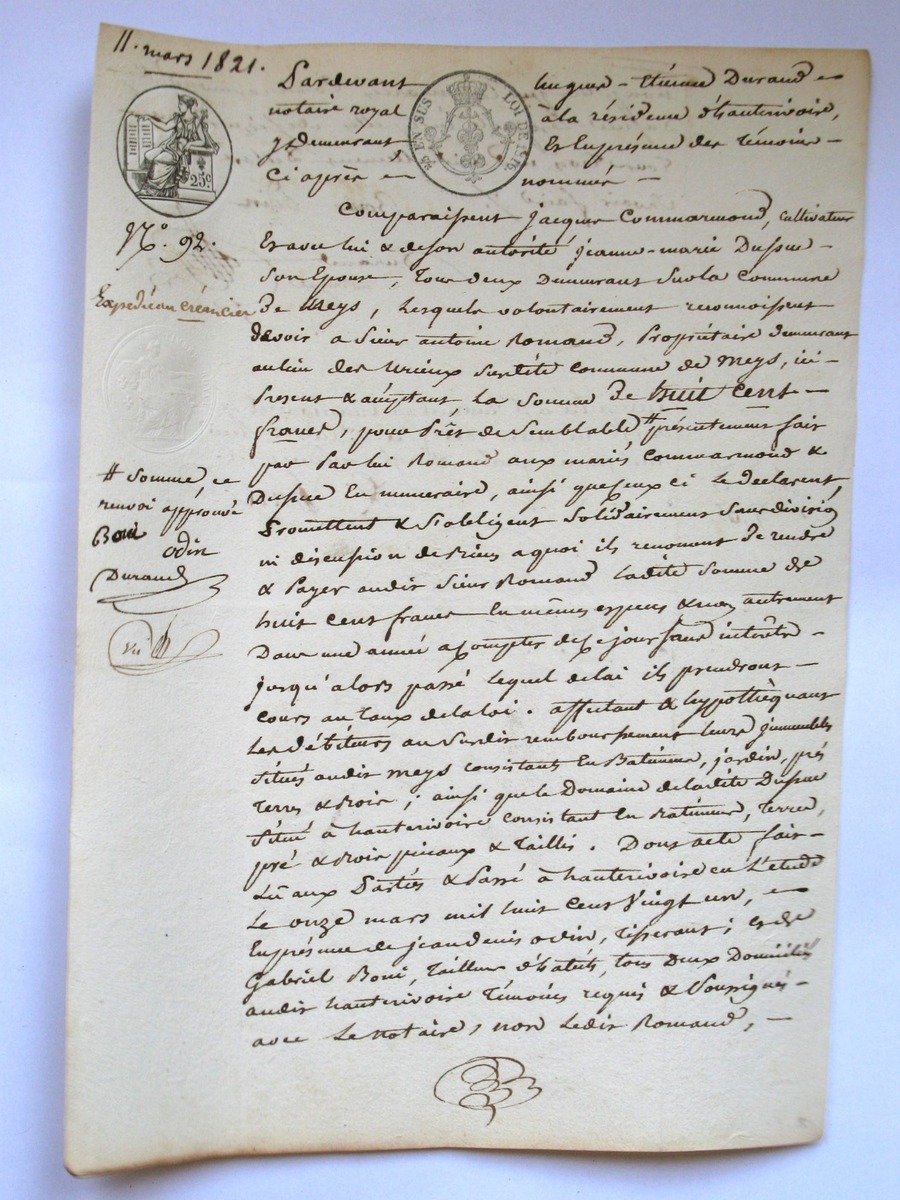 11. mars 1821.
25c
EN SUS
LOI DE 1816
Pardevant hugues - Etienne Durand
notaire royal à la résidence d'hauterivoire,
y demeurant Et En présence des Témoins -
Ci après nommés -
N.º 92.
Comparaissent jacques Commarmond, cultivateur
Et avec lui & de son autorité jeanne-marie Dussuc -
Son Epouse, Tous deux Demeurant Sur la Commune
Expédié au créancier
De Meys, Lesquels volontairement reconnoissent
devoir a Sieur antoine Romand, Propriétaire demeurant
au lieu des Surdité Commune de Meys, ici
Present & acceptant, La Somme De huit Cent -
francs, pour Prêt de Semblable # présentement fait
par Par lui Romand aux mariés Commarmond &
# Somme, ce
renvoi approuvé
Boni
odin
Durand
Dussuc En numéraire, ainsi que ceux ci le declarent,
Promettent & S'obligent Solidairement Sans division
ni discussion de Biens a quoi ils renoncent De rendre
& Payer audit Sieur Romand Ladite Somme de
huit cent francs En mêmes especes & non autrement
Dans une année a compter de ce jour Sans intérêts -
jusqu'alors passé lequel delai ils prendront -
cours au taux de la loi. affectant & hypothèquant
Les débiteurs au Susdit remboursement leurs immeubles
Situés audit Meys consistant En Batiment, jardin, prés
Terres & Bois; ainsi que le Domaine de ladite Dussuc
Situé à hauterivoire consistant En Batiment, Terres,
pré & Bois pineaux & Taillis. Dont acte fait -
Lu aux Parties & Passé à hauterivoire en L'etude
Le onze mars mil huit Cent Vingt un, -
En présence de jean denis odin, Tisserant; et de
Gabriel Boni, Tailleur d'habits, tous Deux Domiciliés
audit hauterivoire Témoins requis & Soussignés -
avec Le notaire, non Ledit Romand, -